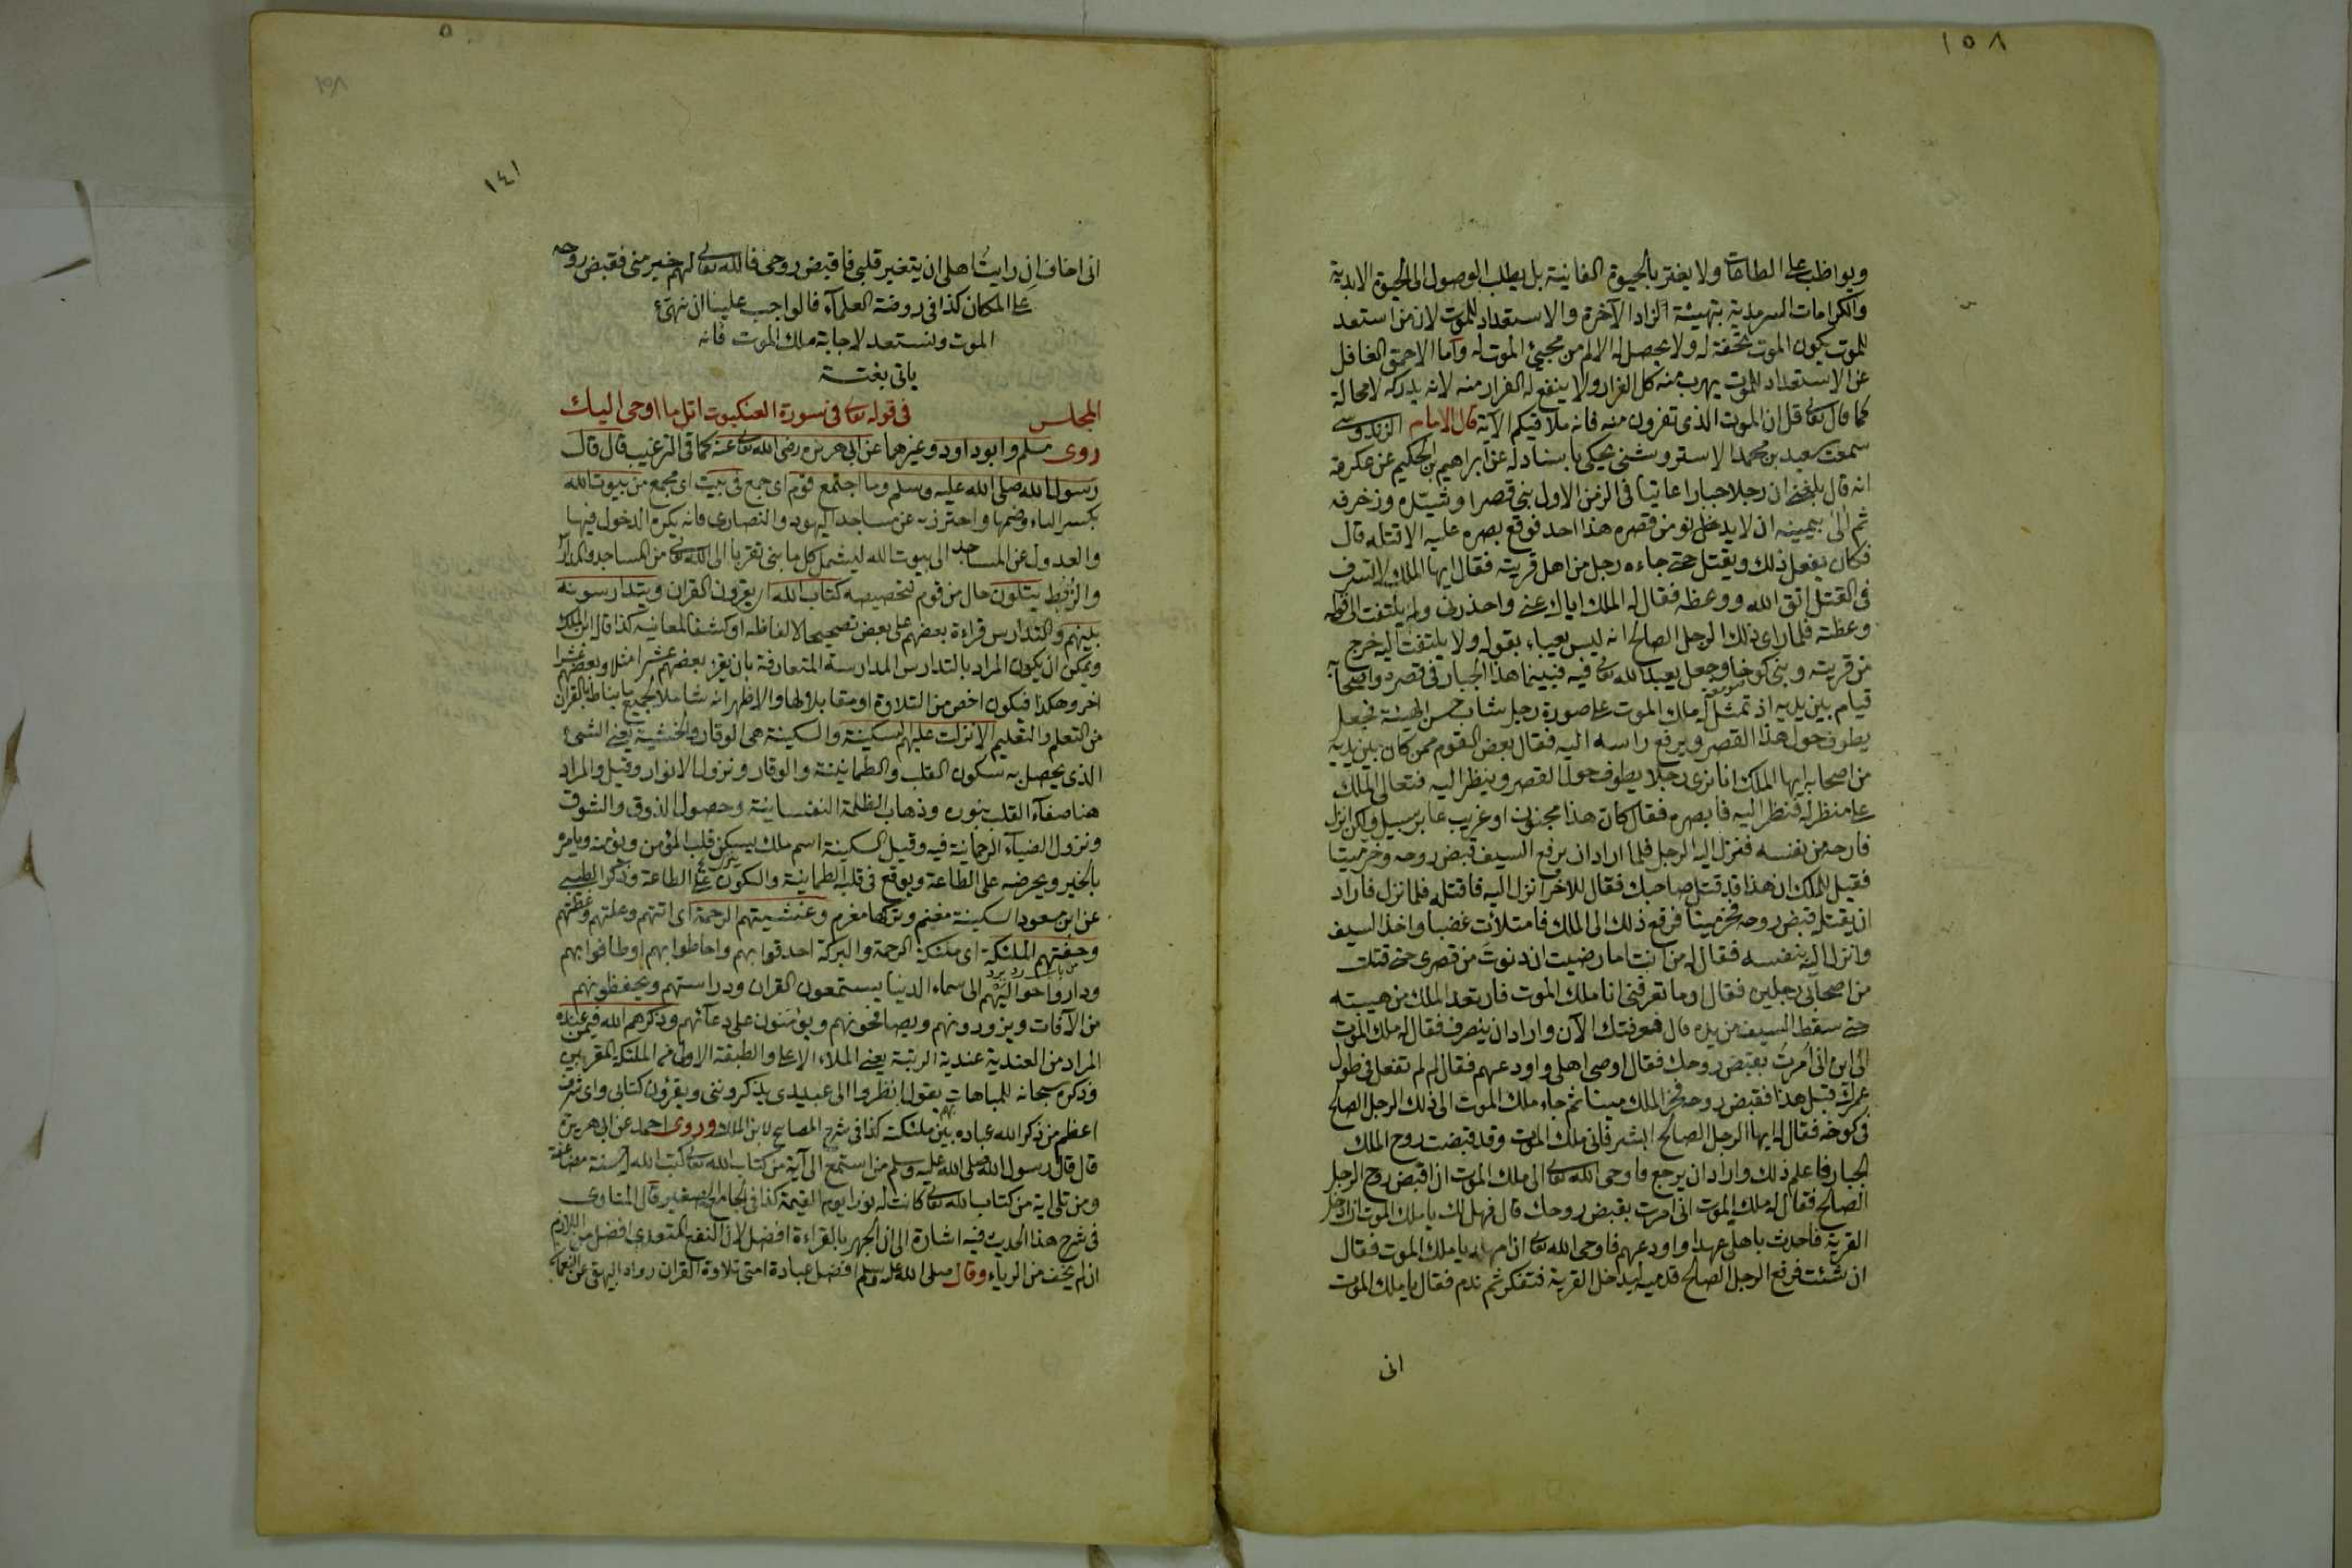 ١٥٨
ويواظب على الطاعات ولا يغتر بالحيوة الفانية بل يطلب الوصول الى الحيوة الابدية
والكرامات السرمدية بتهيئة الزاد الآخرة والاستعداد للموت لان من استعد
للموت يكون الموت تحفة له ولا يحصل له الالم من مجيئ الموت له واما الاحمق الغافل
عن الاستعداد للموت يهرب منه كل الفرار ولا ينفع له الفرار منه لانه يدركه لا محالة
كما قال تعالى قل ان الموت الذى تفرون منه فانه ملاقيكم الآية قال الامام الزندوستى
سمعت سعيد بن محمد الاستروشنى يحكى باسناد له عن ابراهيم بن الحكيم عن عكرمة
انه قال بلغنى ان رجلا جبارا عاتيا فى الزمن الاول بنى قصرا وشيّده وزخرفه
ثم آلى بيمينه ان لا يدخل نو من قصره هذا احد فوقع بصره عليه الا قتله قال
فكان يفعل ذلك ويقتل حتى جاءه رجل من اهل قريته فقال ايها الملك لا تسرف
فى القتل اتق الله ووعظه فقال له الملك اياك عنى واحذرنى ولم يلتفت الى قوله
وعظته فلما راى ذلك الرجل الصالح انه ليس يعباء بقوله ولا يلتفت اليه خرج
من قريته وبنى كوخا وجعل يعبد الله تعالى فيه فبينما هذا الجبار فى قصره واصحابه
قيام بين يديه اذ تمثل له ملك الموت على صورة رجل شاب حسن الهيئة فجعل
يطوف حول هذا القصر ويرفع راسه اليه فقال بعض القوم ممن كان بين يديه
من اصحابه ايها الملك انا نرى رجلا يطوف حول القصر وينظر اليه فتعالى الملك
على منظر له فنظر اليه فابصره فقال كان هذا مجنون او غريب عابر سبيل ولكن انزل
فارحه من نفسه فنزل اليه الرجل فلما اراد ان يرفع السيف قبض روحه وخر ميتا
فقيل للملك ان هذا قد قتل صاحبك فقال للاخر انزل اليه فاقتله فلما نزل فاراد
ان يقتله قبض روحه فخر ميتا فرفع ذلك الى الملك فامتلأت غضبا واخذ السيف
وانزل اليه بنفسه فقال له من انت اما رضيت ان دنوت من قصرى حتى قتلت
من اصحابى رجلين فقال اوما تعرفنى انا ملك الموت فارتعد الملك من هيبته
حتى سقط السيف من يده قال فعرفتك الآن واراد ان ينصرف فقال له ملك الموت
الى اين انى أمرت بقبض روحك فقال اوصى اهلى واودعهم فقال لم لم تفعل فى طول
عمرك قبل هذا فقبض روحه فخر الملك ميتا ثم جاء ملك الموت الى ذلك الرجل الصالح
فى كوخه فقال له ايها الرجل الصالح ابشر فانى ملك الموت وقد قبضت روح الملك
الجبار فاعلم ذلك واراد ان يرجع فاوحى الله تعالى الى ملك الموت ان اقبض روح الرجل
الصالح فقال له ملك الموت انى امرت بقبض روحك قال فهل لك يا ملك الموت ان ادخل
القرية فاحدث باهلى عهدا واودعهم فاوحى الله تعالى ان امهله يا ملك الموت فقال
ان شئت فرفع الرجل الصالح قدميه ليدخل القرية فتفكر ثم ندم فقال يا ملك الموت
انى
١٤١
انى اخاف ان رايت اهلى ان يتغير قلبى فاقبض روحى فالله تعالى لهم خير منى فقبض روحه
على المكان كذا فى روضة العلمآء فالواجب علينا ان نهيّئ
الموت ونستعد لاجابة ملك الموت فانه
ياتى بغتة
المجلس فى قوله تعالى فى سورة العنكبوت اتل ما اوحى اليك
روى مسلم وابو داود وغيرهما عن ابى هريرة رضى الله تعالى عنه كما فى الترغيب قال قال
رسول الله صلى الله عليه وسلم وما اجتمع قوم اى جمع فى بيت اى مجمع من بيوت الله
بكسر الباء وضمها واحترز به عن مساجد اليهود والنصارى فانه يكره الدخول فيها
والعدول عن المساجد الى بيوت الله ليشمل كل ما بنى تقربا الى الله تعالى من المساجد والمدارس
والرُبُط يتلون حال من قوم لتخصيصه كتاب الله اى يقرون القران ويتدارسونه
بينهم والتدارس قراءة بعضهم على بعض تصحيحا لالفاظه او كشفا لمعانيه كذا قال ابن الملك
ويمكن ان يكون المراد بالتدارس المدارسة المتعارفة بان يقرء بعضهم عشرا مثلا وبعضهم عشرا
اخر وهكذا فيكون اخص من التلاوة او مقابلا لها والاظهر انه شامل لجميع ما يناط بالقران
من التعلم والتعليم الا نزلت عليهم السكينة والسكينة هى الوقار والخشية يعنى الشئ
الذى يحصل به سكون القلب والطمانينة والوقار ونزول الانوار وقيل والمراد
هنا صفآء القلب بنوره وذهاب الظلمة النفسانية وحصول الذوق والشوق
ونزول الضيآء الرحمانية فيه وقيل السكينة اسم ملك يسكن قلب المؤمن ويؤمنه ويامره
بالخير ويحرضه على الطاعة ويوقع فى قلبه الطمانينة والسكون على الطاعة وذكر الطيبى
عن ابن مسعود السكينة مغنم وتركها مغرم وغشيتهم الرحمة اى اتتهم وعلتهم وغطتهم
وحفتهم الملئكة اى ملئكة الرحمة والبركة احدقوا بهم واحاطوا بهم او طافوا بهم
وداروا حواليهم الى سماء الدنيا يستمعون القران ودراستهم ويحفظونهم
من الآفات ويزورونهم ويصافحونهم ويؤمنون على دعآئهم وذكرهم الله فيمن عنده
المراد من العندية عندية الرتبة يعنى الملاء الاعلى والطبقة الاولى من الملئكة المقربين
وذكره سبحانه للمباهات يقول انظروا الى عبيدى يذكروننى ويقرؤن كتابى واى شرف
اعظم من ذكر الله عباده بين ملئكته كذا فى شرح المصابيح لابن الملك وروى احمد عن ابى هريرة
قال قال رسول الله صلى الله عليه وسلم من استمع الى آية من كتاب الله تعالى كتب الله له حسنة مضاعفة
ومن تلى اية من كتاب الله تعالى كانت له نورا يوم القيمة كذا فى الجامع الصغير قال المناوى
فى شرح هذا الحديث فيه اشارة الى ان الجهر بالقراءة افضل لان النفع المتعدى افضل من اللازم
ان لم يخف من الرياء وقال صلى الله عليه وسلم افضل عبادة امتى تلاوة القران رواه البيهقى عن النعمان